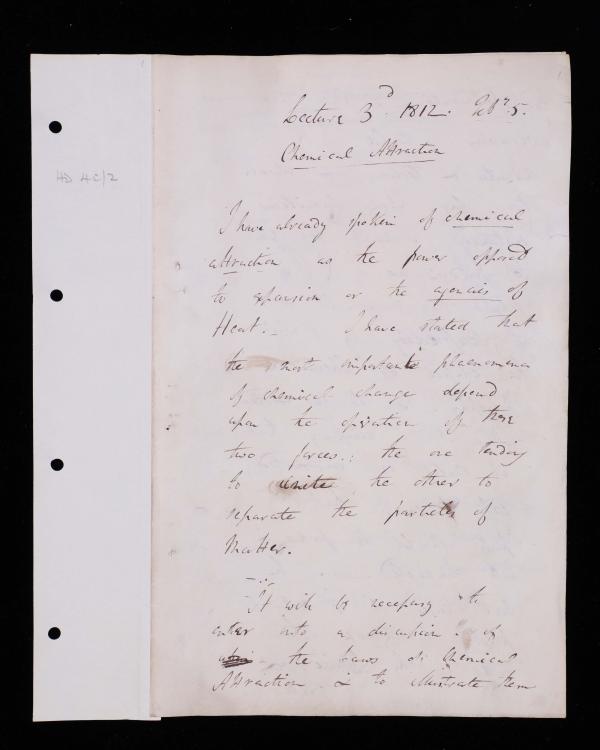 HD 4c/2
Lecture 3d. 1812. Feby 5.
Chemical Attraction
I have already spoken of chemical
attraction as the power opposed
to expansion or the agencies of
Heat. _ I have stated that
the most important phaenomena
of chemical change depend
upon the operation of these
two forces.: the one tending
to unite the other to
separate the particles of
Matter.
It will be necessary to
enter into a discussion of
the Laws of Chemical
Attraction & to illustrate them